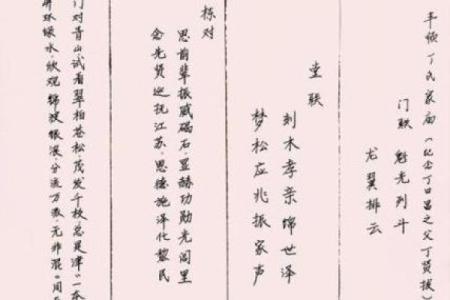 丰顺丁氏家庙（纪念丁日昌之父丁贤拔
门联 魁光列斗
龙翼排云
堂联
刻木孝亲绵世泽
梦松应兆振家声
栋对
思前辈振威碣石，显赫功勋光闾里
念先贤巡抚江苏，恩德施泽化黎民
门对青山，试看翠柏苍松，茂发千枝，总是津（一本
屏环绿水，欣观锦波银浪，分流万派，无非混（同